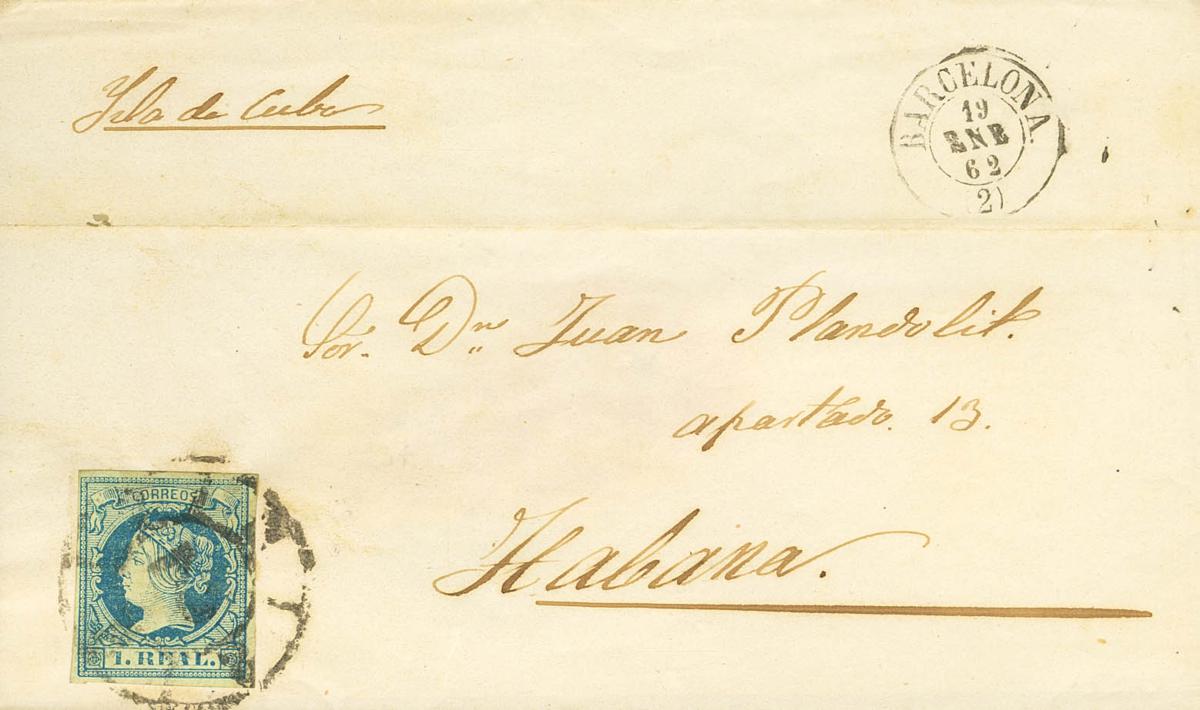 Isla de Cuba
BARCELONA.
19
ENE
62
2)
Sor. Dn. Juan Plandolit.
apartado. 13.
Habana.
CORREOS
1. REAL.